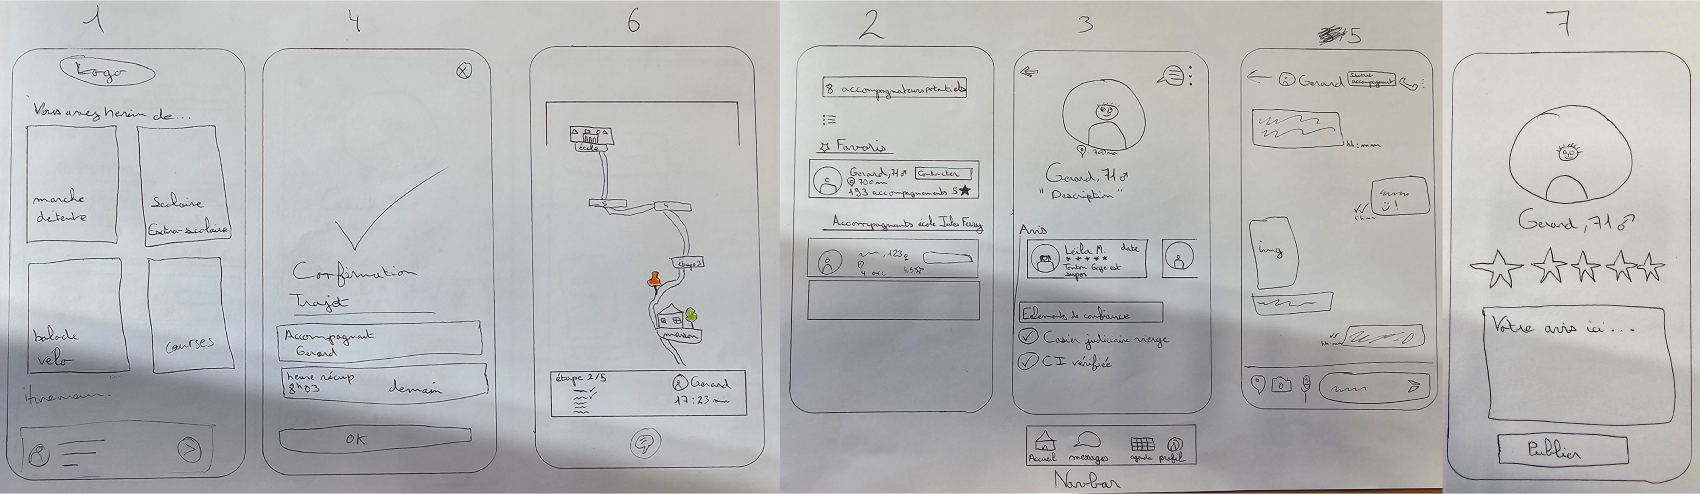 1
Logo
Vous avez besoin de...
marche
detente
Scolaire
Extra-scolaire
balade
vélo
courses
4
Confirmation
Trajet
Accompagnant
Gerard
heure récup
8h03
demain
OK
6
école
5
4
étape 3
maison
étape 2/5
Gerard
17:23 min
2
8 accompagnateurs potentiels
Favoris
Gerard, 71 ♂
Contacter
700m
193 accompagnements 5★
Accompagnants école Jules Ferry
4.9☆
3
700m
Gerard, 71 ♂
"Description"
Avis
Leila M. date
★★★★★
Tonton Gege est
super
Elements de confiance
Casier judiciaire vierge
CI vérifiée
Accueil
messages
agenda
profil
Navbar
5
Gerard
hh:mm
hh:mm
img
hh:mm
7
Gerard, 71 ♂
Votre avis ici...
Publier